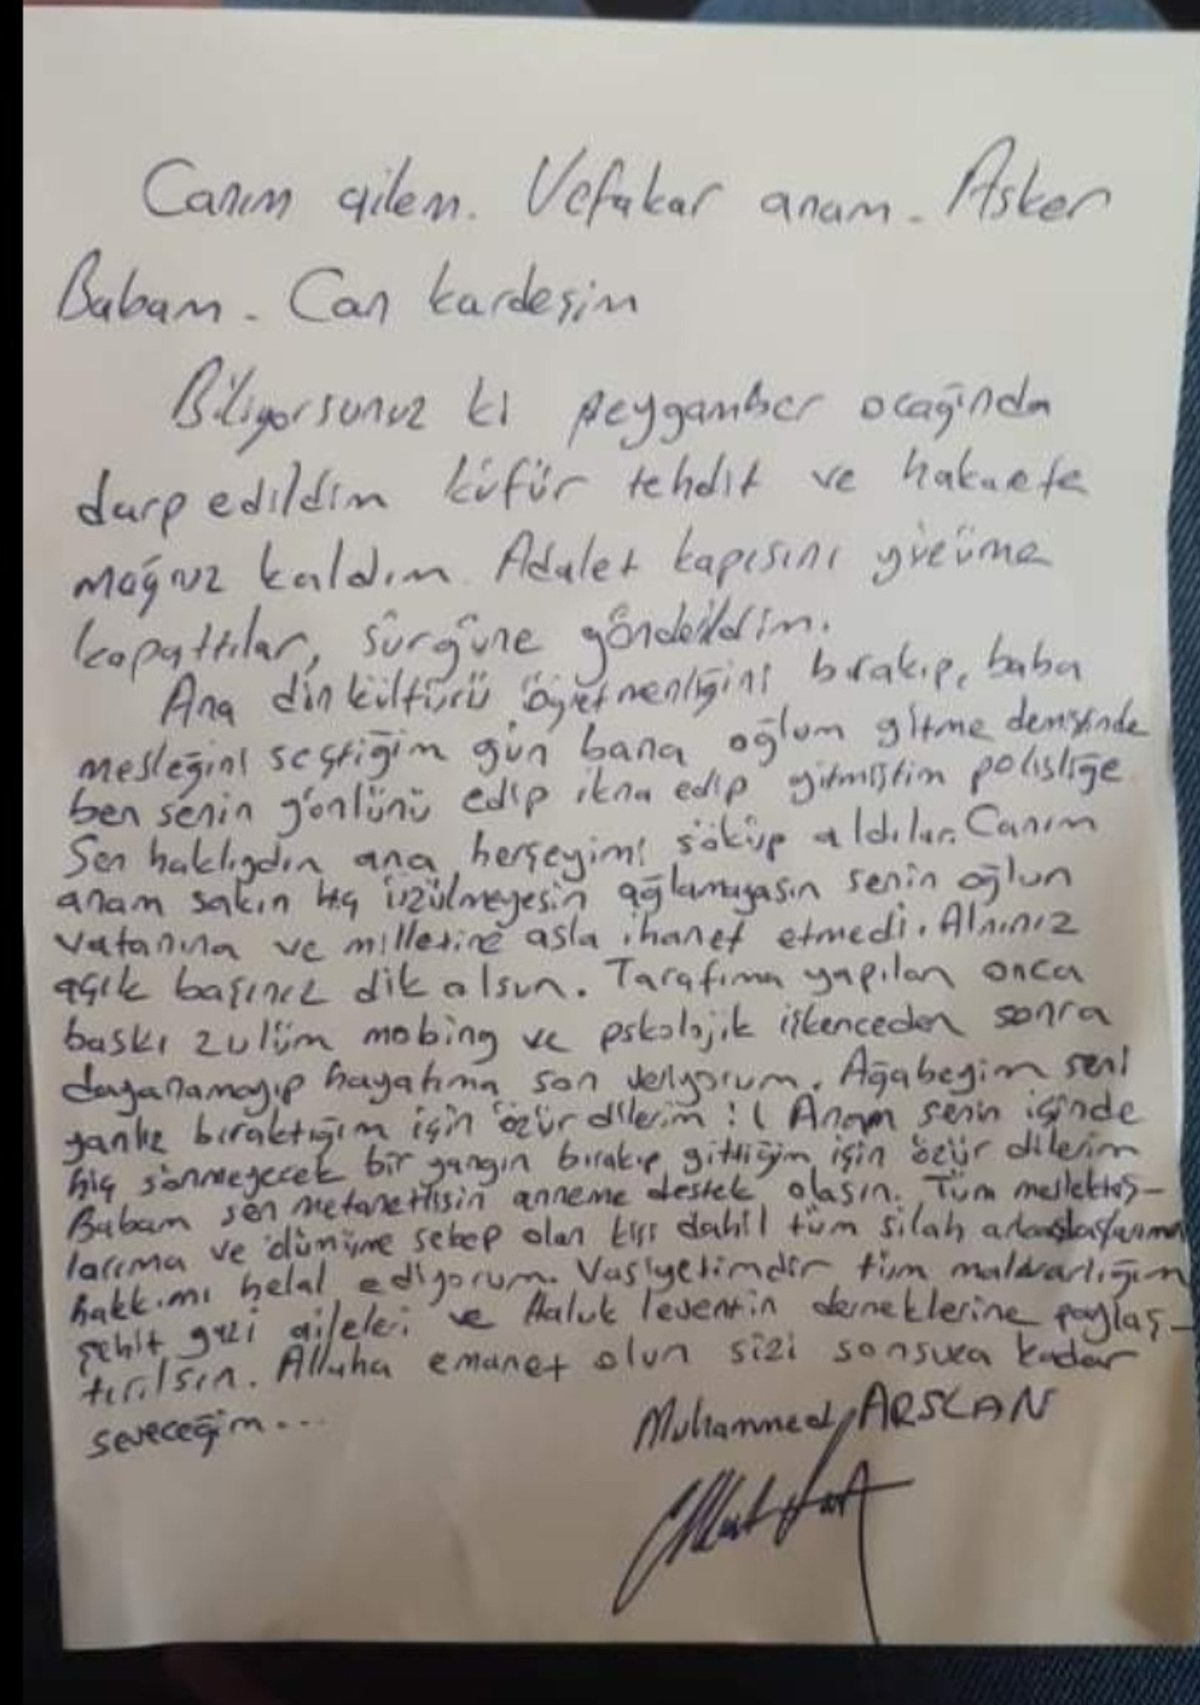 Canım ailem. Vefakar anam. Asker
Babam. Can kardeşim
Biliyorsunuz ki peygamber ocağında
darp edildim küfür tehdit ve hakarete
mağruz kaldım. Adalet kapısını yüzüme
kapattılar, sürgüne gönderildim.
Ana din kültürü öğretmenliğini bırakıp, baba
mesleğini seçtiğim gün bana oğlum gitme demiştinde
ben senin gönlünü edip ikna edip gitmiştim polisliğe
Sen haklıydın ana herşeyimi söküp aldılar. Canım
anam sakın hiç üzülmeyesin ağlamayasın senin oğlun
vatanına ve milletine asla ihanet etmedi. Alnınız
açık başınız dik olsun. Tarafıma yapılan onca
baskı zulüm mobing ve pskolojik işkenceden sonra
dayanamayıp hayatıma son veriyorum. Ağabeyim seni
yanlız bıraktığım için özür dilerim :( Anam senin içinde
hiç sönmeyecek bir yangın bırakıp gittiğim için özür dilerim
Babam sen metanetlisin anneme destek olasın. Tüm meslektaş-
larıma ve ölümüme sebep olan kişi dahil tüm silah arkadaşlarıma
hakkımı helal ediyorum. Vasiyetimdir tüm malvarlığım
şehit gazi aileleri ve Haluk levent'in derneklerine paylaş-
tırılsın. Allaha emanet olun sizi sonsuza kadar
seveceğim...
Muhammed ARSLAN